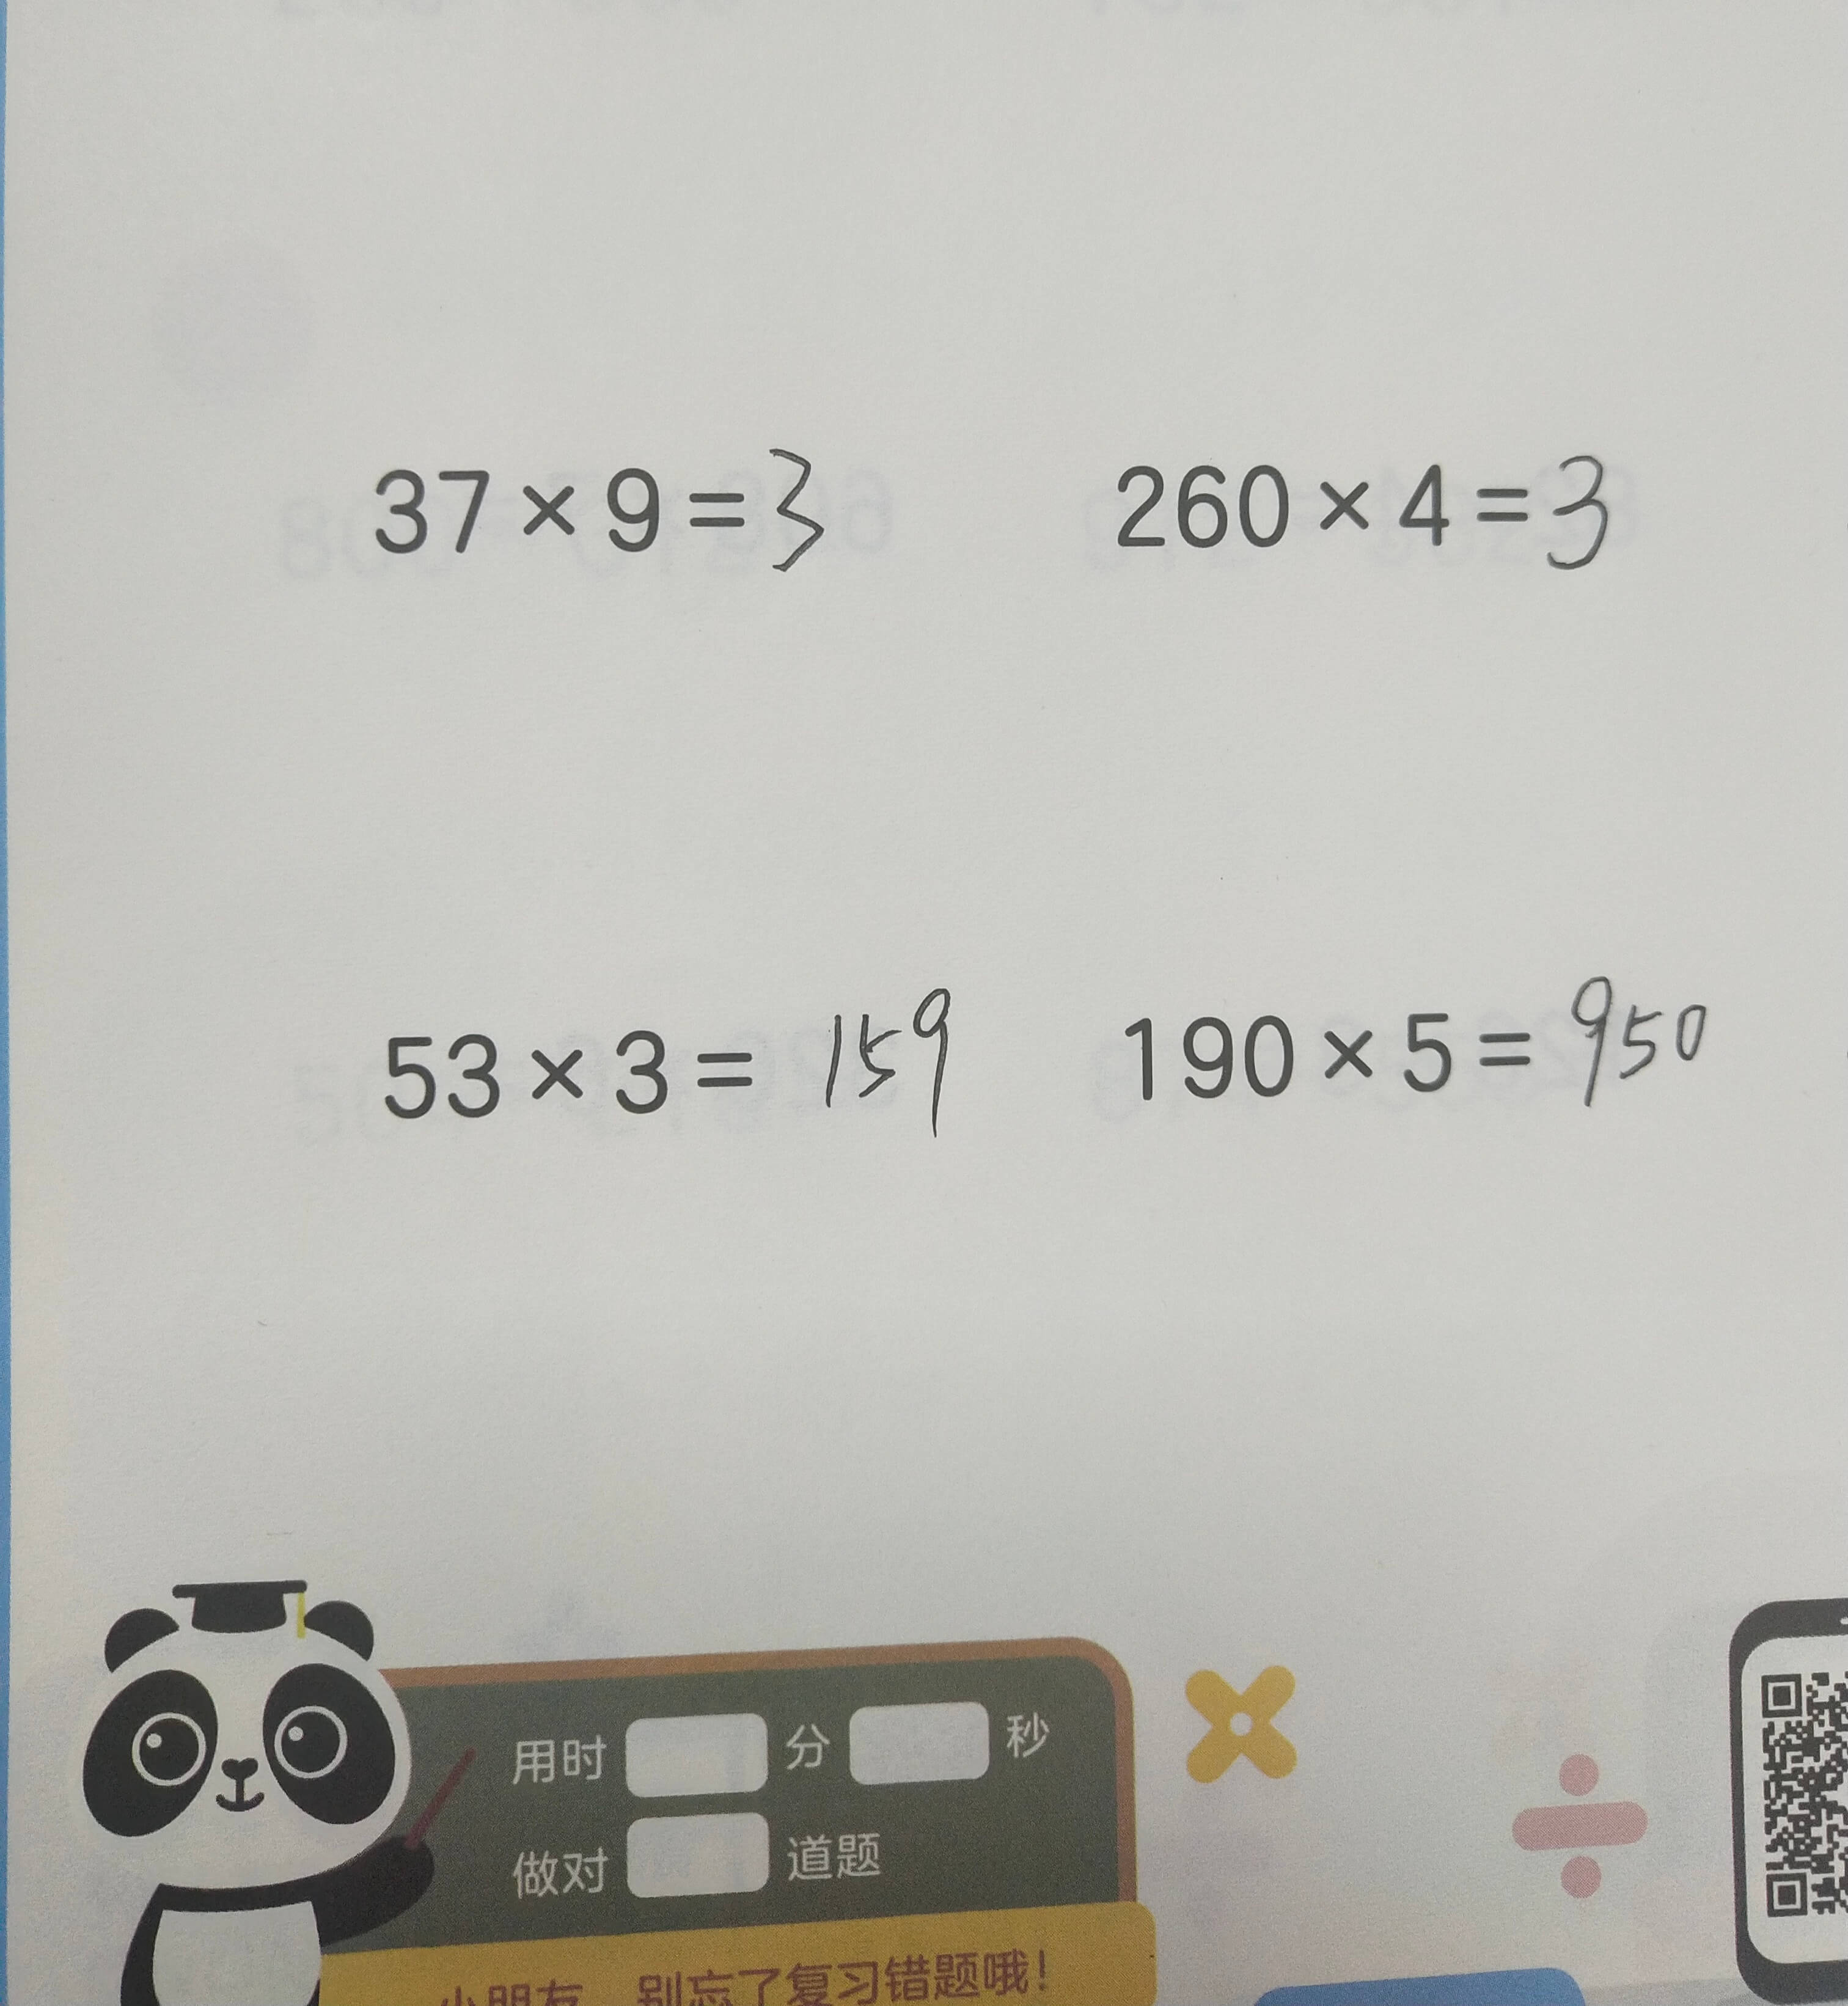 37×9=3 260×4=3
53×3=159 190×5=950
用时 分 秒
做对 道题
小朋友，别忘了复习错题哦！